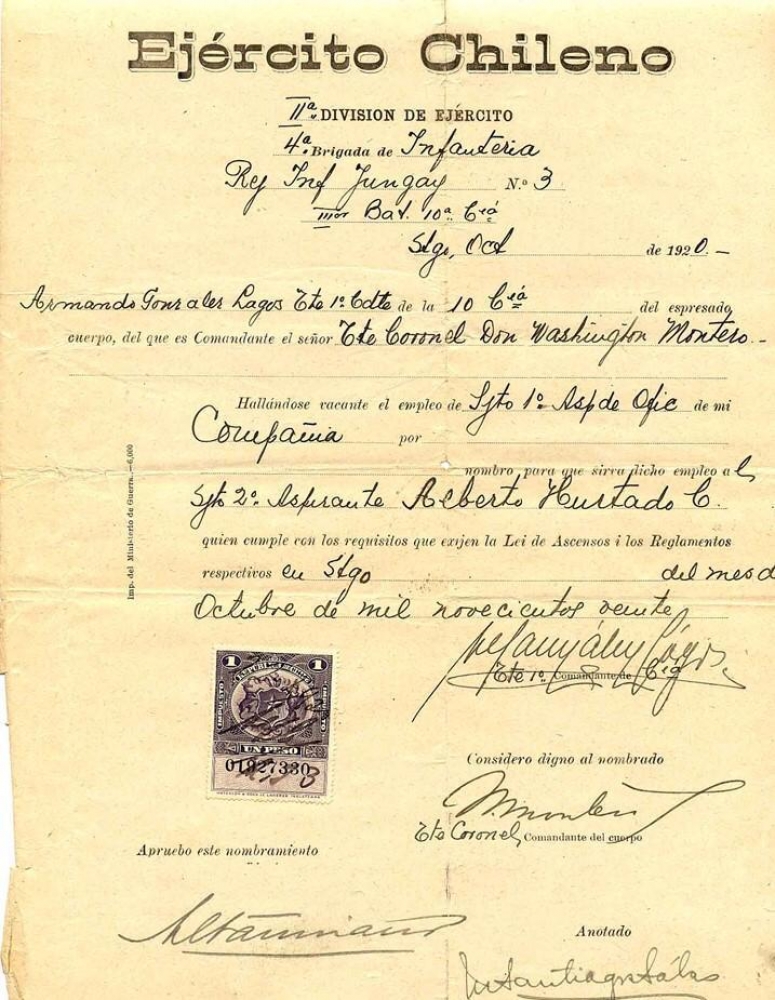 Ejército Chileno
IIª. DIVISION DE EJÉRCITO
4ª. Brigada de Infanteria
Rej Inf Yungay N.º 3
IIIer Bat. 10ª Cía
Stgo, Oct de 1920.-
Armando Gonzales Lagos Tte 1º Cdte de la 10 Cía del espresado
cuerpo, del que es Comandante el señor Tte Coronel Don Washington Montero.-
Hallándose vacante el empleo de Sjto 1º Asp de Ofic de mi
Compañia por
nombro para que sirva dicho empleo al
Sjto 2º. Aspirante Alberto Hurtado C.
quien cumple con los requisitos que exijen la Lei de Ascensos i los Reglamentos
respectivos en Stgo del mes d
Octubre de mil novecientos veinte
Tte 1º. Comandante de Cía
Imp. del Ministerio de Guerra.—6,000
1 1
IMPUESTO IMPUESTO
UN PESO
01927330
Considero digno al nombrado
Tte Coronel, Comandante del cuerpo
Apruebo este nombramiento
Anotado